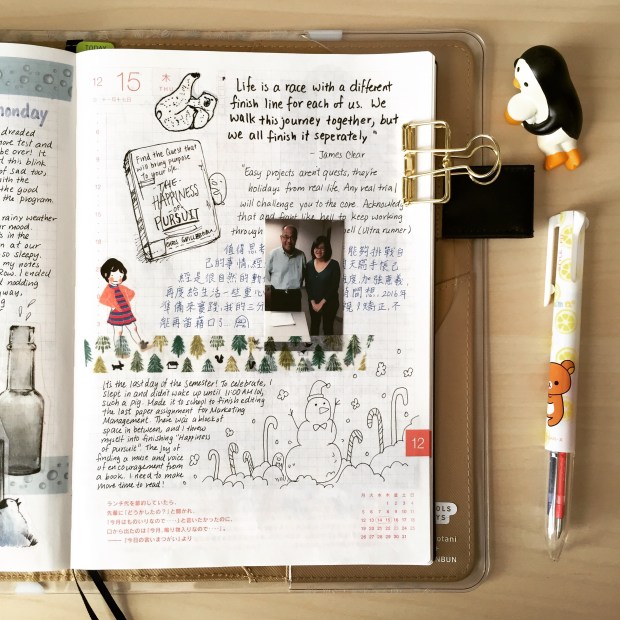 monday
dreaded
test and
be over! It
this blink
of sad too,
with the
the good
the program.
rainy weather
mood.
in the
at our
so sleepy.
my notes
Row. I ended
nodding
TODAY
12 15 木
THU
"Life is a race with a different
finish line for each of us. We
walk this journey together, but
we all finish it seperately"
- James Clear
Find the Quest that
will bring purpose
to your life.
THE
HAPPINESS
OF
PURSUIT
"Easy projects aren't quests, they're
holidays from real life. Any real trial
will challenge you to the core. Acknowledge
that and fight like hell to keep working
through (Ultra runner)
值得思考 能夠挑戰自
己的事情,經 天寫手帳己
經是很自然的動 度,加強意義,
再度給生活一些重 時間想,2016年
準備來實踐,我的三分 視/矯正,不
能再當藉口了
It's the last day of the semester! To celebrate, I
slept in and didn't wake up until 11:00 AM lol,
such a pig. Made it to school to finish editing
the last paper assignment for Marketing
Management. There was a block of
space in between, and I threw
myself into finishing "Happiness
of pursuit" The joy of
finding a movie and voice
of encouragement from
a book. I need to make
more time to read!
12
ランチ代を貸おしていたら、
先輩に「どうかしたの?」と聞かれ、
「今月はものいりなので……」と言いたかったのに、
口から出たのは「今月、取り物入りなので……」。
――『今日の言いまつがい』より
月 火 水 木 金 土 日
1 2 3 4
5 6 7 8 9 10 11
12 13 14 15 16 17 18
19 20 21 22 23 24 25
26 27 28 29 30 31